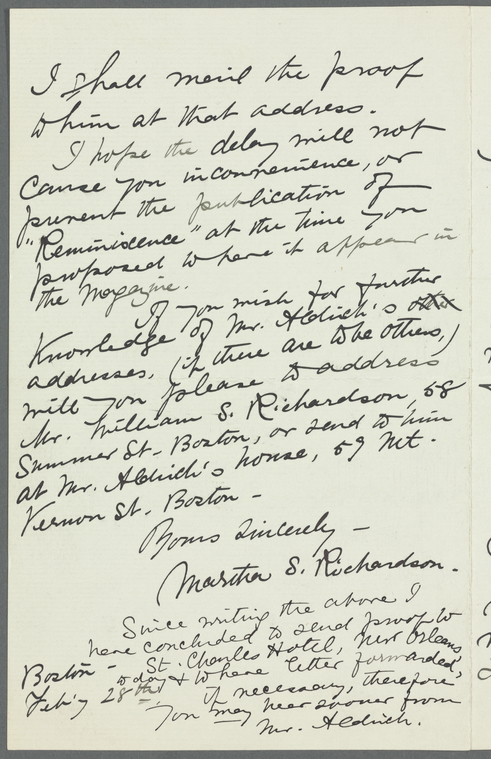 I shall mail the proof
to him at that address.
I hope the delay will not
cause you inconvenience, or
prevent the publication of
"Reminiscence" at the time you
proposed to have it appear in
the Magazine.
If you wish for further
Knowledge of Mr. Aldrich's
addresses, (if there are to be others,)
will you please to address
Mr. William S. Richardson, 58
Summer St. Boston, or send to him
at Mr. Aldrich's house, 59 Mt.
Vernon St. Boston -
Yours sincerely -
Martha S. Richardson.
Since writing the above I
have concluded to send proof to
St. Charles Hotel, New Orleans,
today & to have letter forwarded,
if necessary, therefore
you may hear sooner from
Mr. Aldrich.
Boston -
Feb'y 28th